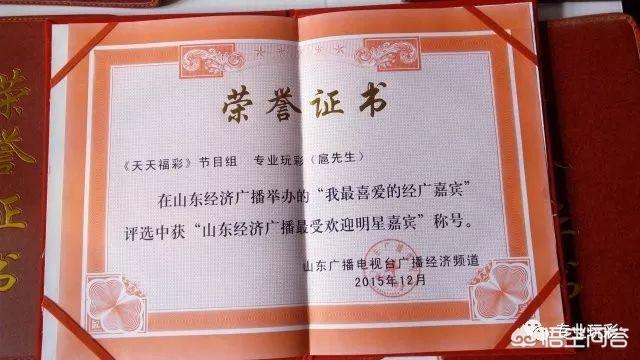 荣誉证书
荣誉证书
《天天福彩》节目组 专业玩彩（扈先生）
在山东经济广播举办的“我最喜爱的经广嘉宾”
评选中获“山东经济广播最受欢迎明星嘉宾”称号。
山东广播电视台广播经济频道
2015年12月
专业玩彩
悟空问答